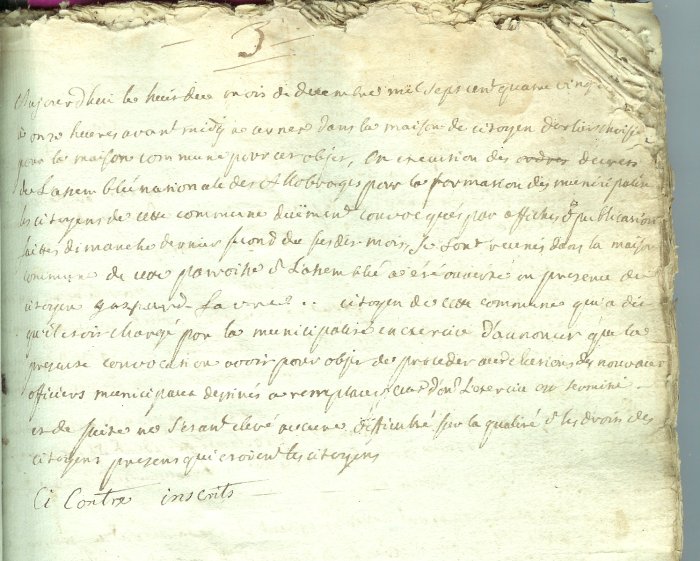 3
Aujourd'huy le huit du mois de decembre mil sept cent quatre vingt
à onze heures avant midÿ a cerner dans la maison de citoyen
pour la maison commune pour cet objet, En execution des ordres decrets
de L'assemblée nationale des Allobroges pour la formation des municipalité
les citoyens de cette commune duëment convoqués par affiches & publication
faittes dimanche dernier second du susdit mois, se sont reunis dans la maison
commune de cette parroisse & L'assemblée a été ouverte en presence du
citoyen gaspard favre .. citoyen de cette commune qui a dit
qu'il etoit chargé par la municipalité en exercice d'annoncer que la
presente convocation avoit pour objet de proceder aux elections des nouveaux
officiers municipaux destinés a remplacer ceux dont L'exercice est terminé
et de suite ne s'etant elevé aucune difficulté sur la qualité & les droits des
citoyens presens qui etoient les citoyens
Ci Contre inscrits